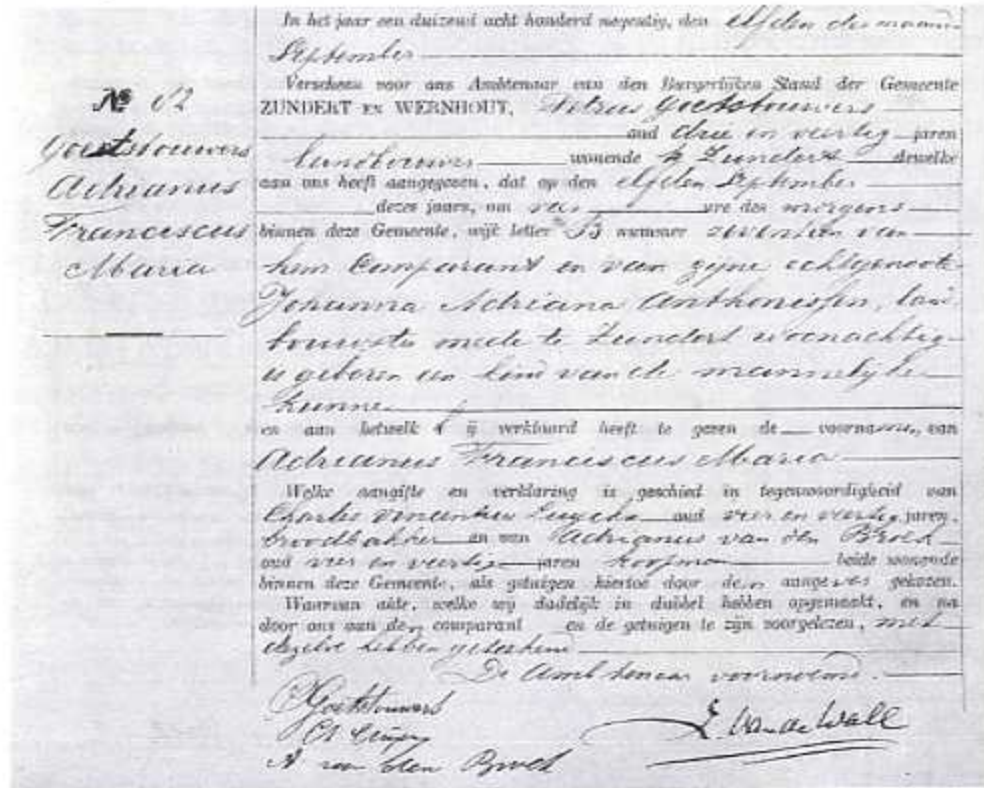 In het jaar een duizend acht honderd negentig, den elfden der maand
September
Verscheen voor ons Ambtenaar van den Burgerlijken Stand der Gemeente
ZUNDERT EN WERNHOUT, Petrus Goetstouwers
oud drie en veertig jaren
landbouwer wonende te Zundert dewelke
aan ons heeft aangegeven, dat op den elfden September
dezes jaars, om ure des morgens
binnen deze Gemeente, wijk letter B nummer zeventien van
hem Comparant en van zijne echtgenoote
Johanna Adriana Anthonissen, lan
bouwster mede te Zundert woonachtig
is geboren een kind van de mannelijke
kunne
en aan hetwelk ij verklaard heeft te geven de voorname, van
Adrianus Franciscus Maria
Welke aangifte en verklaring is geschied in tegenwoordigheid van
Charles Vincentius oud vier en veertig jaren,
broodbakker en van Adrianus van den Broek
oud vier en veertig jaren koopman beide wonende
binnen deze Gemeente, als getuigen hiertoe door den aangever gekozen.
Waarvan akte, welke wij dadelijk in dubbel hebben opgemaakt, en na
door ons aan den comparant en de getuigen te zijn voorgelezen, met
dezelve hebben geteekend
De Ambtenaar voornoemd.
P Goetstouwers
Ch
A van den Broek
L. Van de Wall
No 62
Goetstouwers
Adrianus
Franciscus
Maria